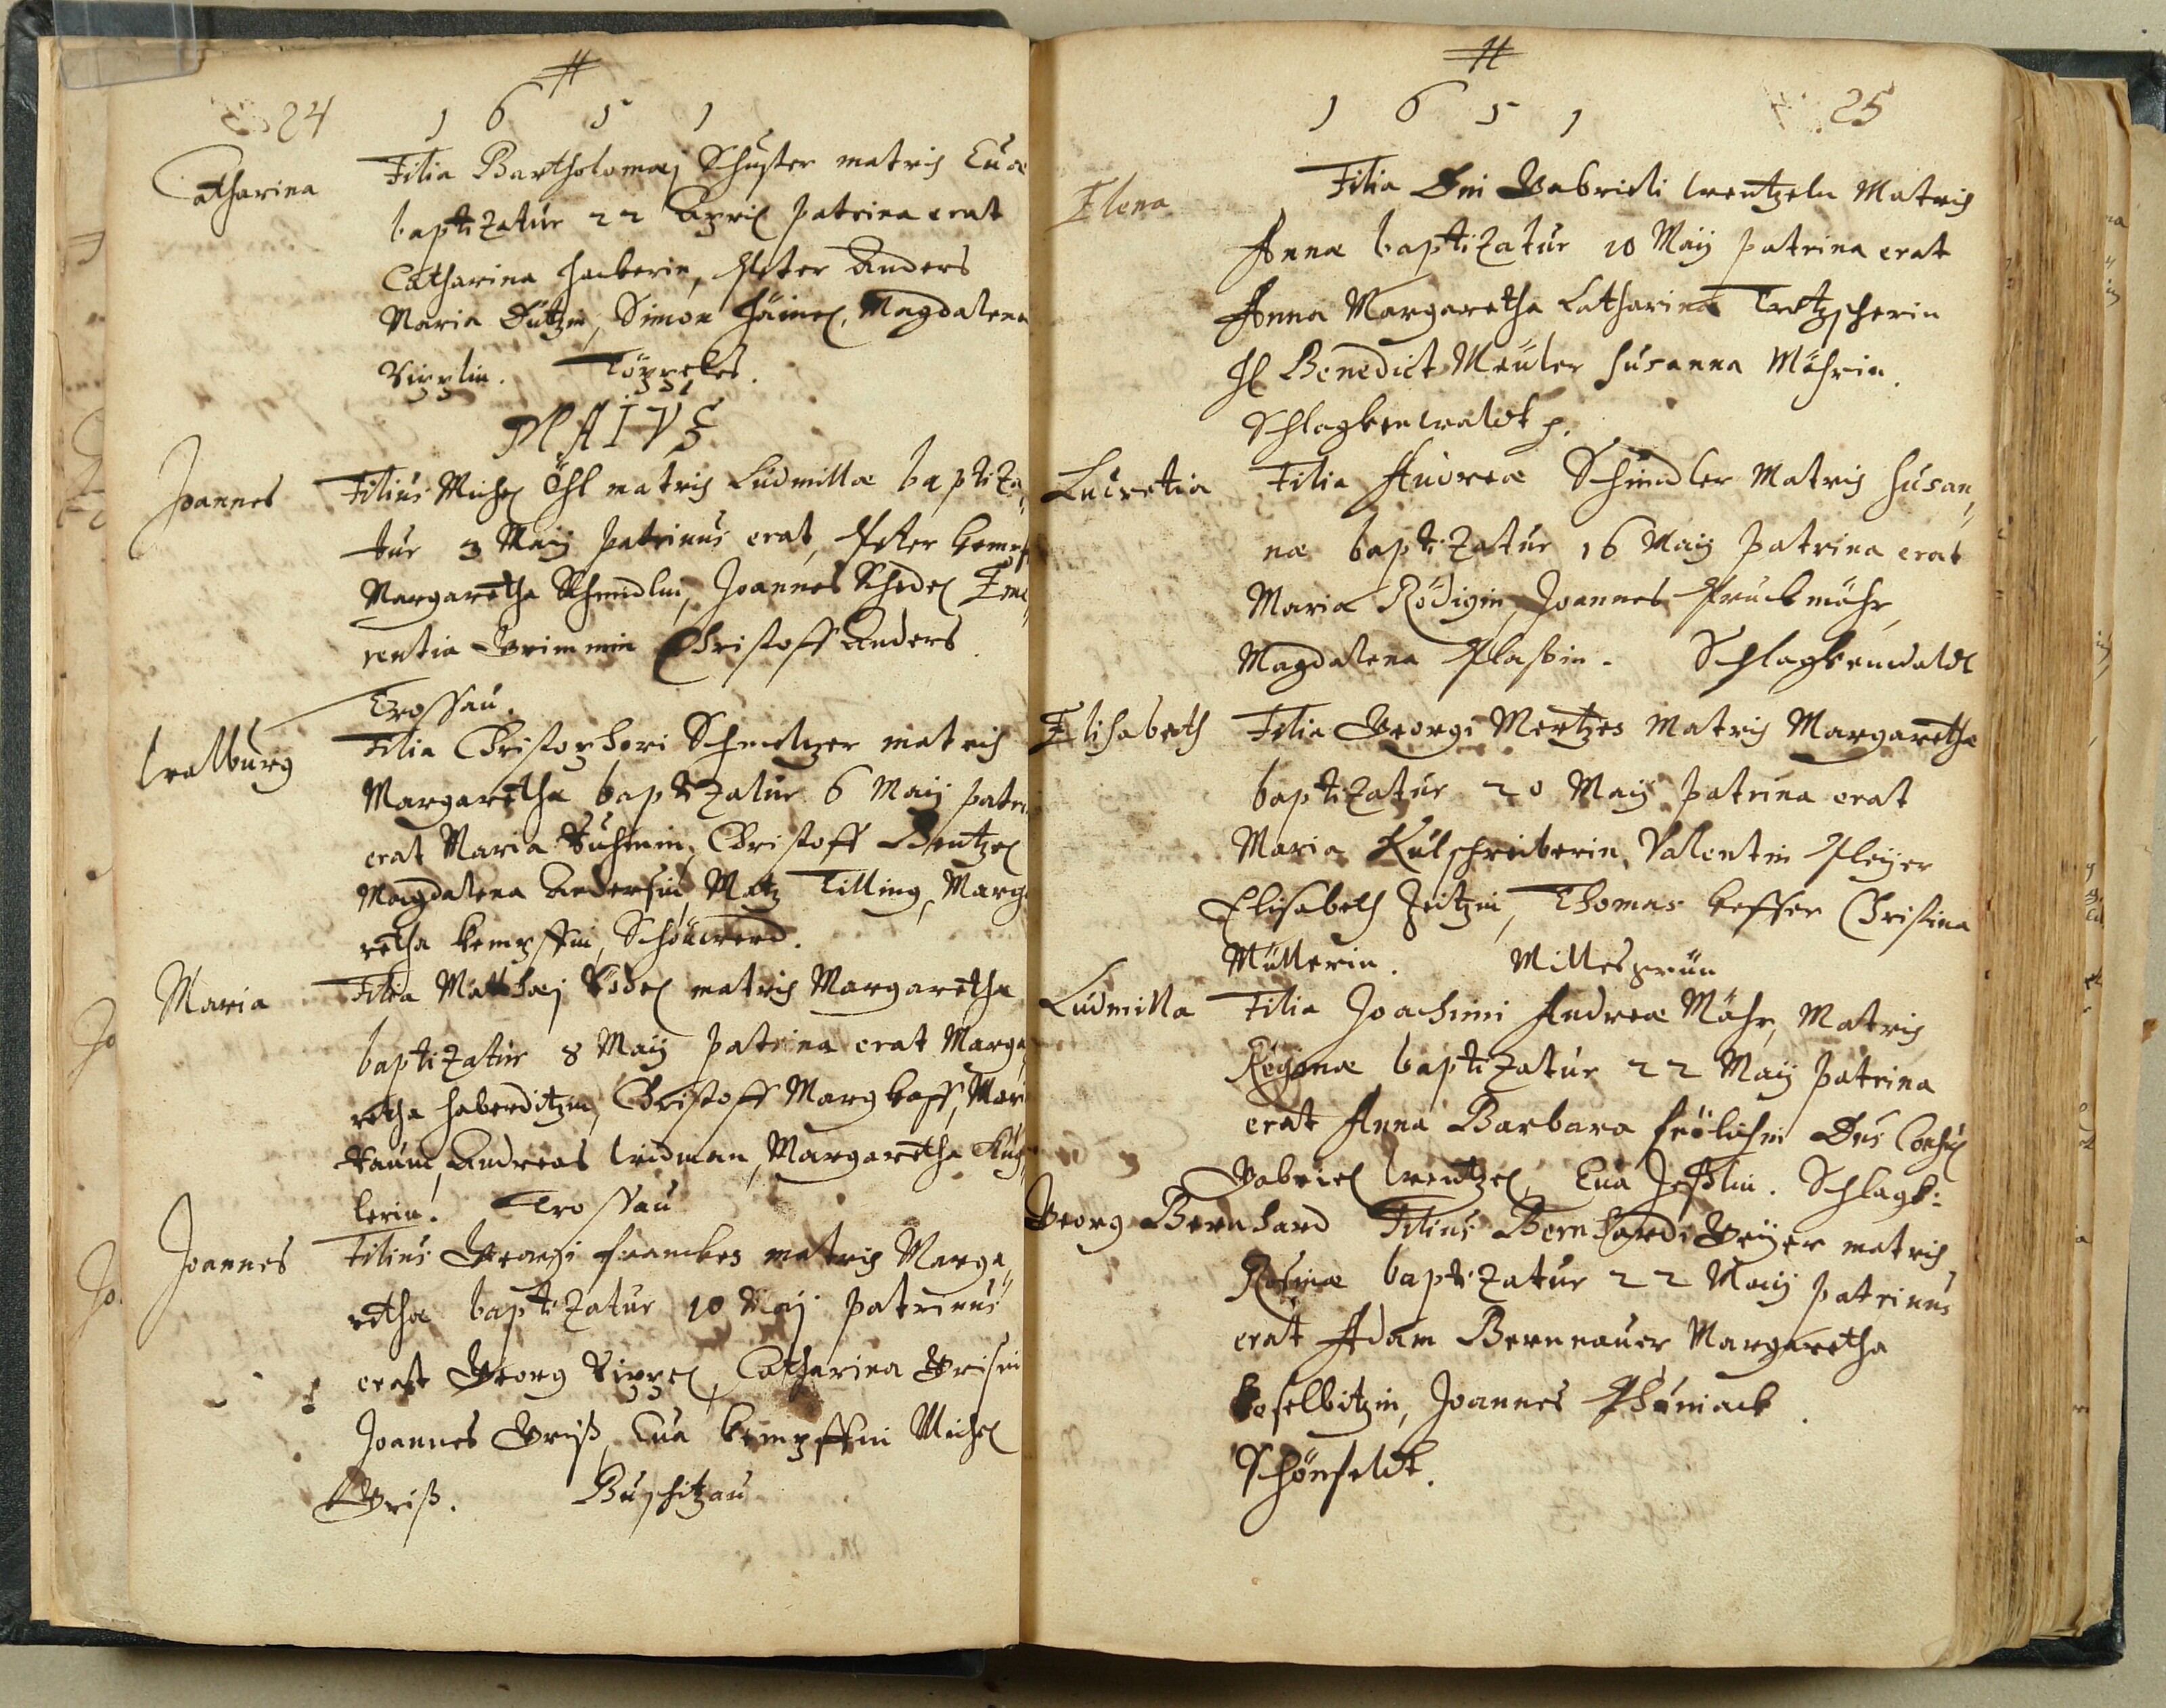 24
1 6 5 1
Catharina Filia Bartholomæj Schuster matris Euæ
baptizatur 22 April patrina erat
Catharina Hackerin, Peter Anders
Maria Dützin, Simon Häinel, Magdalena
Vipplin. Töppeles.
MAIVS
Joannes Filius Michel Öhl matris Ludmillæ baptiza
tur 3 Maij patrinus erat, Peter Kempf
Margaretha Schmidlin, Joannes Schedel
rentia Grimmin Christoff Anders.
Trossau.
Walburg Filia Christophori Schmeltzer matris
Margarethæ baptizatur 6 Maij patri
erat Maria, Christoff Wentzel
Magdalena Andersin, Matz Tilling, Marga
retha Kempffin, Schönwerd.
Maria Filia Matthæj Ködel matris Margarethæ
baptizatur 8 Maij patrina erat Marga
retha Haberditzin, Christoff Margkaff, Mar
Andreas Widman, Margaretha
lerin. Trossau
Joannes Filius Georgi Franckes matris Marga
rethæ baptizatur 10 Maij patrinus
erat Georg Vippel, Catharina Grisin
Joannes Griß, Eua Kempffin Michel
Griß. Buschitzau
25
1 6 5 1
Elena Filia Dni Gabrieli Wentzeln Matris
Annæ baptizatur 10 Maij patrina erat
Anna Margaretha Catharina Tretzscherin
H Benedict Meuler Susanna Möhrin.
Schlagkenwaldt
Lucretia Filia Andreæ Schindler Matris Susan
næ baptizatur 16 Maij patrina erat
Maria Rödigin, Joannes Pruckmöhr,
Magdalena Plaßin. Schlagkenwaldt
Elisabeth Filia Georgi Mertzes Matris Margarethæ
baptizatur 20 Maij patrina erat
Maria Kulschreiberin, Valentin Pleyer
Elisabeth Zeitzin, Thomas Keffer Christina
Müllerin. Millesgrün
Ludmilla Filia Joachimi Andreæ Möhr, Matris
Reginæ baptizatur 22 Maij patrina
erat Anna Barbara Frölichin Dns
Gabriel Wentzel, Eua Heßlin. Schlagk:
Georg Bernhard Filius Bernhardi Geyer matris
Rosinæ baptizatur 22 Maij patrinus
erat Adam Bernnauer Margaretha
Koselbitzin, Joannes Phöniack.
Schönfeldt.